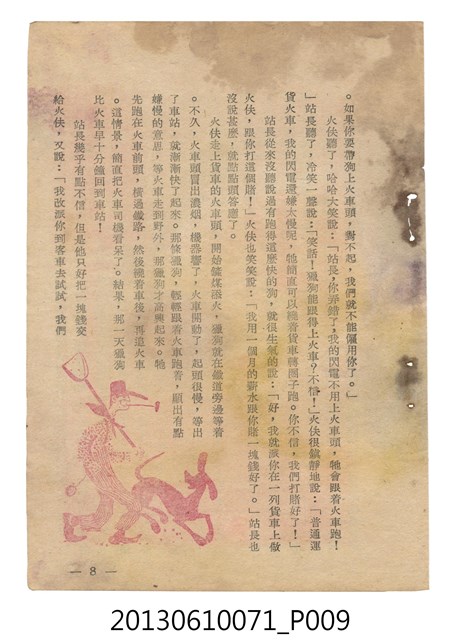 。如果你要帶狗上火車頭，對不起，我們就不能僱用你了。」
火伕聽了，哈哈大笑說：「站長，你弄錯了，我的閃電不用上火車頭，牠會跟着火車跑！
」站長聽了，冷笑一聲說：「笑話！獵狗能跟得上火車？不信！」火伕很鎮靜地說：「普通運
貨火車，我的閃電還嫌太慢呢，牠簡直可以繞着貨車轉圈子跑。你不信，我們打賭好了！」
站長從來沒聽說過有跑得這麼快的狗，就很生氣的說：「好，我就派你在一列貨車上做
火伕，跟你打這個賭！」火伕也笑笑說：「我用一個月的薪水跟你賭一塊錢好了。」站長也
沒說甚麼，就點點頭答應了。
火伕走上貨車的火車頭，開始鏟煤潑火，獵狗就在鐵道旁邊等着
。不久，火車頭冒出濃烟，機器響了，火車開動了，起頭很慢，等出
了車站，就漸漸快了起來。那條獵狗，輕輕跟着火車跑着，顯出有點
嫌慢的意思，等火車走到野外，那獵狗才高興起來。牠
先跑在火車前頭，橫過鐵路，然後繞着車後，再追火車
。這情景，簡直把火車司機看呆了。結果，那一天獵狗
比火車早十分鐘回到車站！
站長幾乎有點不信，但是他只好把一塊錢交
給火伕，又說：「我改派你到客車去試試，我們
— 8 —
20130610071_P009